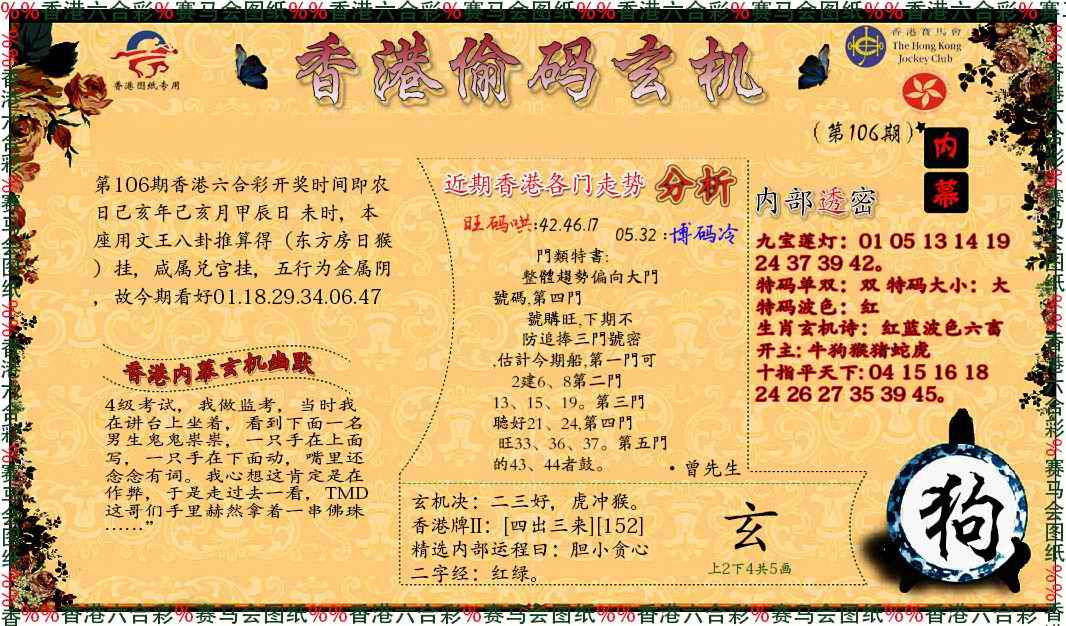 %%香港六合彩%赛马会图纸%%香港六合彩%赛马会图纸%%香港六合彩%赛马会图纸%%香港六合彩%赛
香港图纸专用
香港偷码玄机
香港賽馬會
The Hong Kong
Jockey Club
(第106期)
内
幕
第106期香港六合彩开奖时间即农
日己亥年己亥月甲辰日 未时，本
座用文王八卦推算得（东方房日猴
）挂，咸属兑宫挂，五行为金属阴
，故今期看好01.18.29.34.06.47
香港内幕玄机幽默
4级考试，我做监考，当时我
在讲台上坐着，看到下面一名
男生鬼鬼祟祟，一只手在上面
写，一只手在下面动，嘴里还
念念有词。我心想这肯定是在
作弊，于是走过去一看，TMD
这哥们手里赫然拿着一串佛珠
……”
近期香港各门走势 分析
旺码哄:42.46.17
05.32 :博码冷
門類特書:
整體趨勢偏向大門
號碼,第四門
號購旺,下期不
防追捧三門號密
,估計今期船,第一門可
2建6、8第二門
13、15、19。第三門
聽好21、24,第四門
旺33、36、37。第五門
的43、44者鼓。
·曾先生
内部透密
九宝莲灯：01 05 13 14 19
24 37 39 42。
特码单双：双 特码大小：大
特码波色：红
生肖玄机诗：红蓝波色六畜
开主: 牛狗猴猪蛇虎
十指平天下: 04 15 16 18
24 26 27 35 39 45。
玄机决：二三好，虎冲猴。
香港牌II：[四出三来][152]
精选内部运程曰：胆小贪心
二字经：红绿。
玄
上2下4共5画
狗
香%%香港六合彩%赛马会图纸%%香港六合彩%赛马会图纸%%香港六合彩%赛马会图纸%%香港六合彩